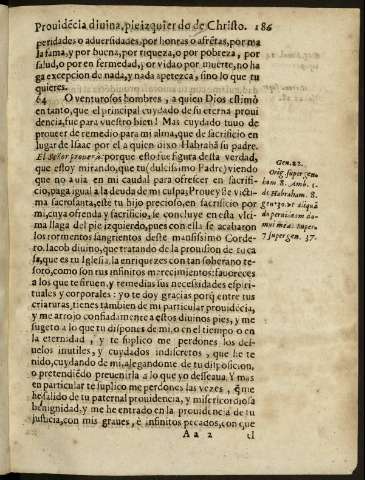 Prouidẽcia diuina, pie izquierdo de Christo. 186
peridades o aduersidades, por honras o afrẽtas, por ma
la fama, y por buena, por riqueza, o por pobreza, por
salud, o por enfermedad, por vida o por muerte, no ha
ga excepcion de nada, y nada apetezca, sino lo que tu
quieres.
64 O venturosos hombres, a quien Dios estimò
en tanto, que el principal cuydado de su eterna proui
dencia, fue para vuestro bien! Mas cuydado tuuo de
proueer de remedio para mi alma, que de sacrificio en
lugar de Isaac por el a quien dixo Habrahã su padre.
El Señor proueerà: porque esto fue figura desta verdad,
que estoy mirando, que tu (dulcissimo Padre) viendo
que no auia en mi caudal para ofrescer en sacrifi-
cio, paga igual a la deuda de mi culpa; Proueyste victi-
ma sacrosanta, este tu hijo precioso, en sacrificio por
mi, cuya ofrenda y sacrificio, se concluye en esta vlti-
ma llaga del pie izquierdo, pues con ella se acabaron
los tormentos sangrientos deste mansissimo Corde-
ro. Iacob diuino, que tratando de la prouision de tu ca
sa, que es tu Iglesia, la enriquezes con tan soberano te-
soro, como son tus infinitos merecimientos: fauoreces
a los que te siruen, y remedias sus necessidades espiri-
tuales y corporales: yo te doy gracias porq̃ entre tus
criaturas, tienes tambien de mi particular prouidẽcia,
y me arrojo confiadamente a estos diuinos pies, y me
sugeto a lo que tu dispones de mi, o en el tiempo o en
la eternidad, y te suplico me perdones los des-
uelos inutiles, y cuydados indiscretos, que he te
nido, cuydando de mi, alegandome de tu disposicion,
o pretendiẽdo preuenirla a lo que yo desseaua. Y mas
en particular te suplico me perdones las vezes, q̃ me
he salido de tu paternal prouidencia, y misericordiosa
benignidad, y me he entrado en la prouidencia de tu
justicia, con mis graues, e infinitos pecados, con que
A a 2 el
Gen. 22.
Orig. super gen.
ham 8. Amb. 1.
de Habraham. 8.